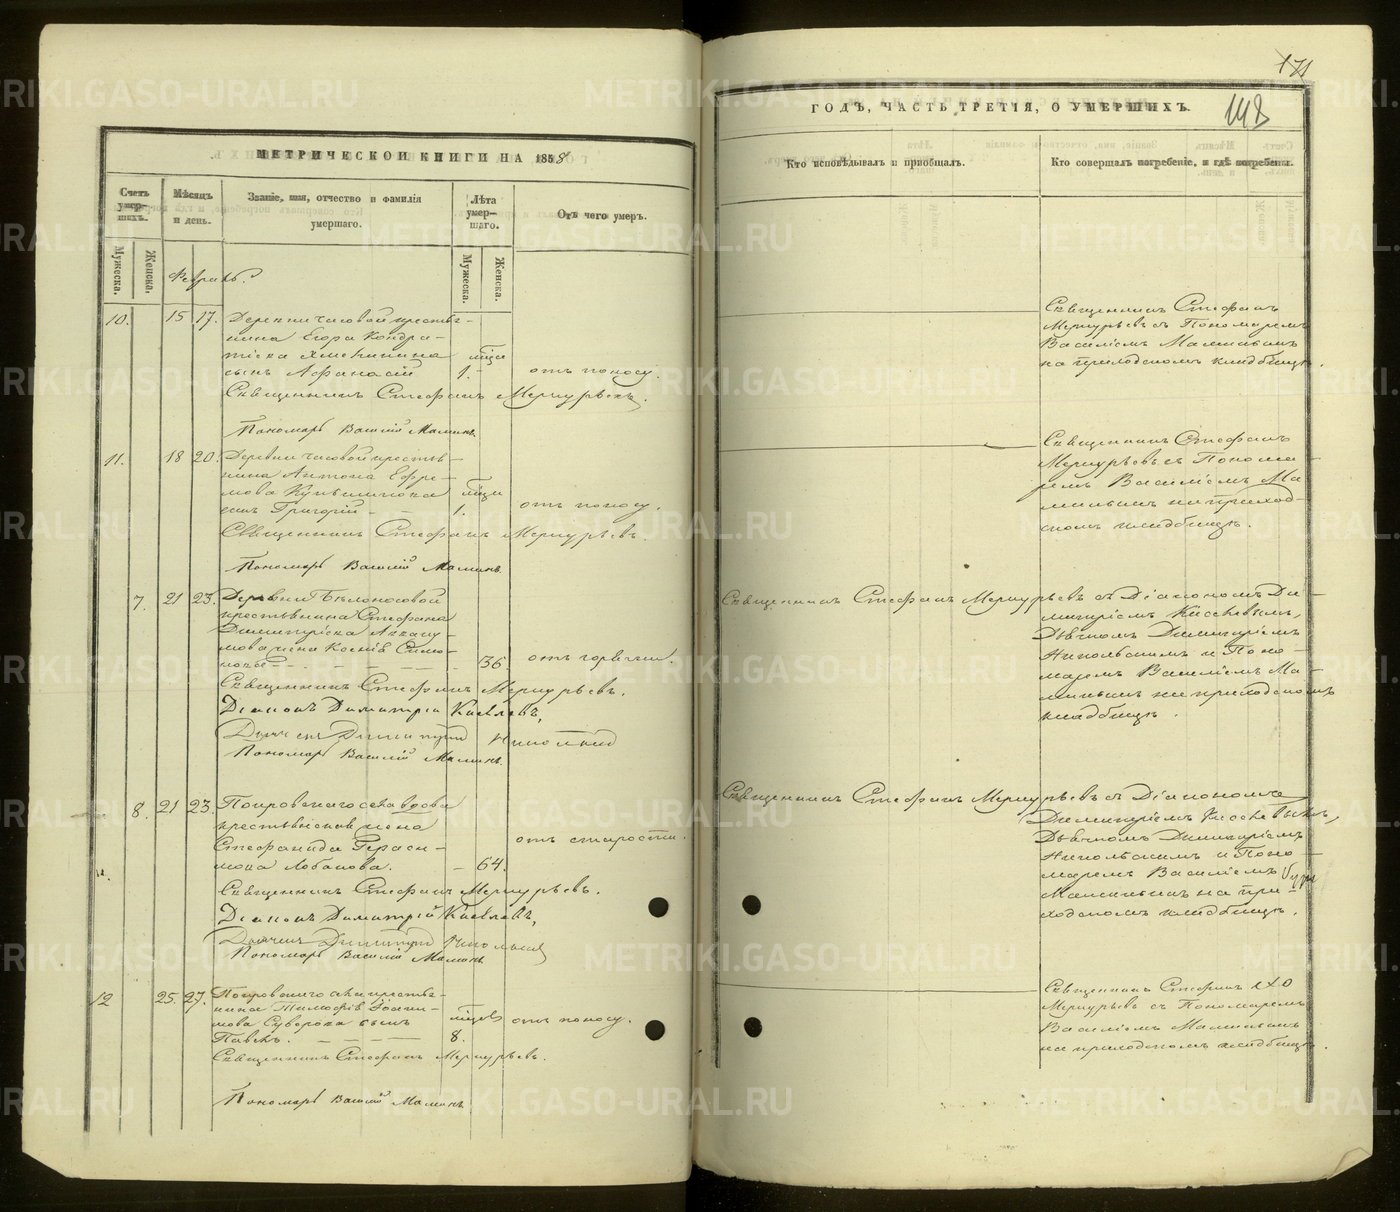 МЕТРИЧЕСКОЙ КНИГИ НА 1858
Счетъ умер-шихъ.
Мѣсяцъ и день.
Званіе, имя, отчество и фамилія
умершаго.
Лѣта умер-шаго.
Отъ чего умеръ.
Мужеска.
Женска.
Мужеска.
Женска.
Февраль.
10. 15 17. Деревни Часовой крестья-
нина Егора Кондра-
сынъ Афанасій 1. отъ поносу.
Священникъ Стефанъ Меркурьевъ.
Пономарь Василій Маминъ.
11. 18 20. Деревни Часовой крестья-
нина Антона Ефре-
мова
сынъ Григорій 1. отъ поносу.
Священникъ Стефанъ Меркурьевъ.
Пономарь Василій Маминъ.
7. 21 23. Деревни Бѣлоносовой
крестьянина Стефана
Димитріева
жена Ксенія Симо-
нова 36. отъ горячки.
Священникъ Стефанъ Меркурьевъ.
Діаконъ Димитрій Киселевъ,
Дьячекъ Димитрій Никольскій
Пономарь Василій Маминъ.
8. 21 23. Покровскаго села вдова
крестьянская жена
Стефанида Гераси-
мова Лобанова. 64. отъ старости.
Священникъ Стефанъ Меркурьевъ.
Діаконъ Димитрій Киселевъ,
Дьячекъ Димитрій Никольскій
Пономарь Василій Маминъ.
12 25. 27. Покровскаго села крестья-
нина Тимофея Іоаки-
мова Суворова сынъ
Павелъ. 8. отъ поносу.
Священникъ Стефанъ Меркурьевъ.
Пономарь Василій Маминъ.
171
ГОДЪ, ЧАСТЬ ТРЕТІЯ, О УМЕРШИХЪ.
Кто исповѣдывалъ и пріобщалъ.
Кто совершалъ погребеніе, и гдѣ погребены.
Священникъ Стефанъ
Меркурьевъ съ Пономаремъ
Василіемъ Маминымъ
на приходскомъ кладбищѣ.
Священникъ Стефанъ
Меркурьевъ съ Понома-
ремъ Василіемъ Ма-
минымъ на приход-
скомъ кладбищѣ.
Священникъ Стефанъ Меркурьевъ съ Діакономъ Ди-
митріемъ Киселевымъ,
Дьячкомъ Димитріемъ
Никольскимъ и Поно-
маремъ Василіемъ Ма-
минымъ на приходскомъ
кладбищѣ.
Священникъ Стефанъ Меркурьевъ съ Діакономъ
Димитріемъ Киселевымъ,
Дьячкомъ Димитріемъ
Никольскимъ и Поно-
маремъ Василіемъ
Маминымъ на при-
ходскомъ кладбищѣ.
Священникъ Стефанъ
Меркурьевъ съ Пономаремъ
Василіемъ Маминымъ
на приходскомъ кладбищѣ.
METRIKI.GASO-URAL.RU